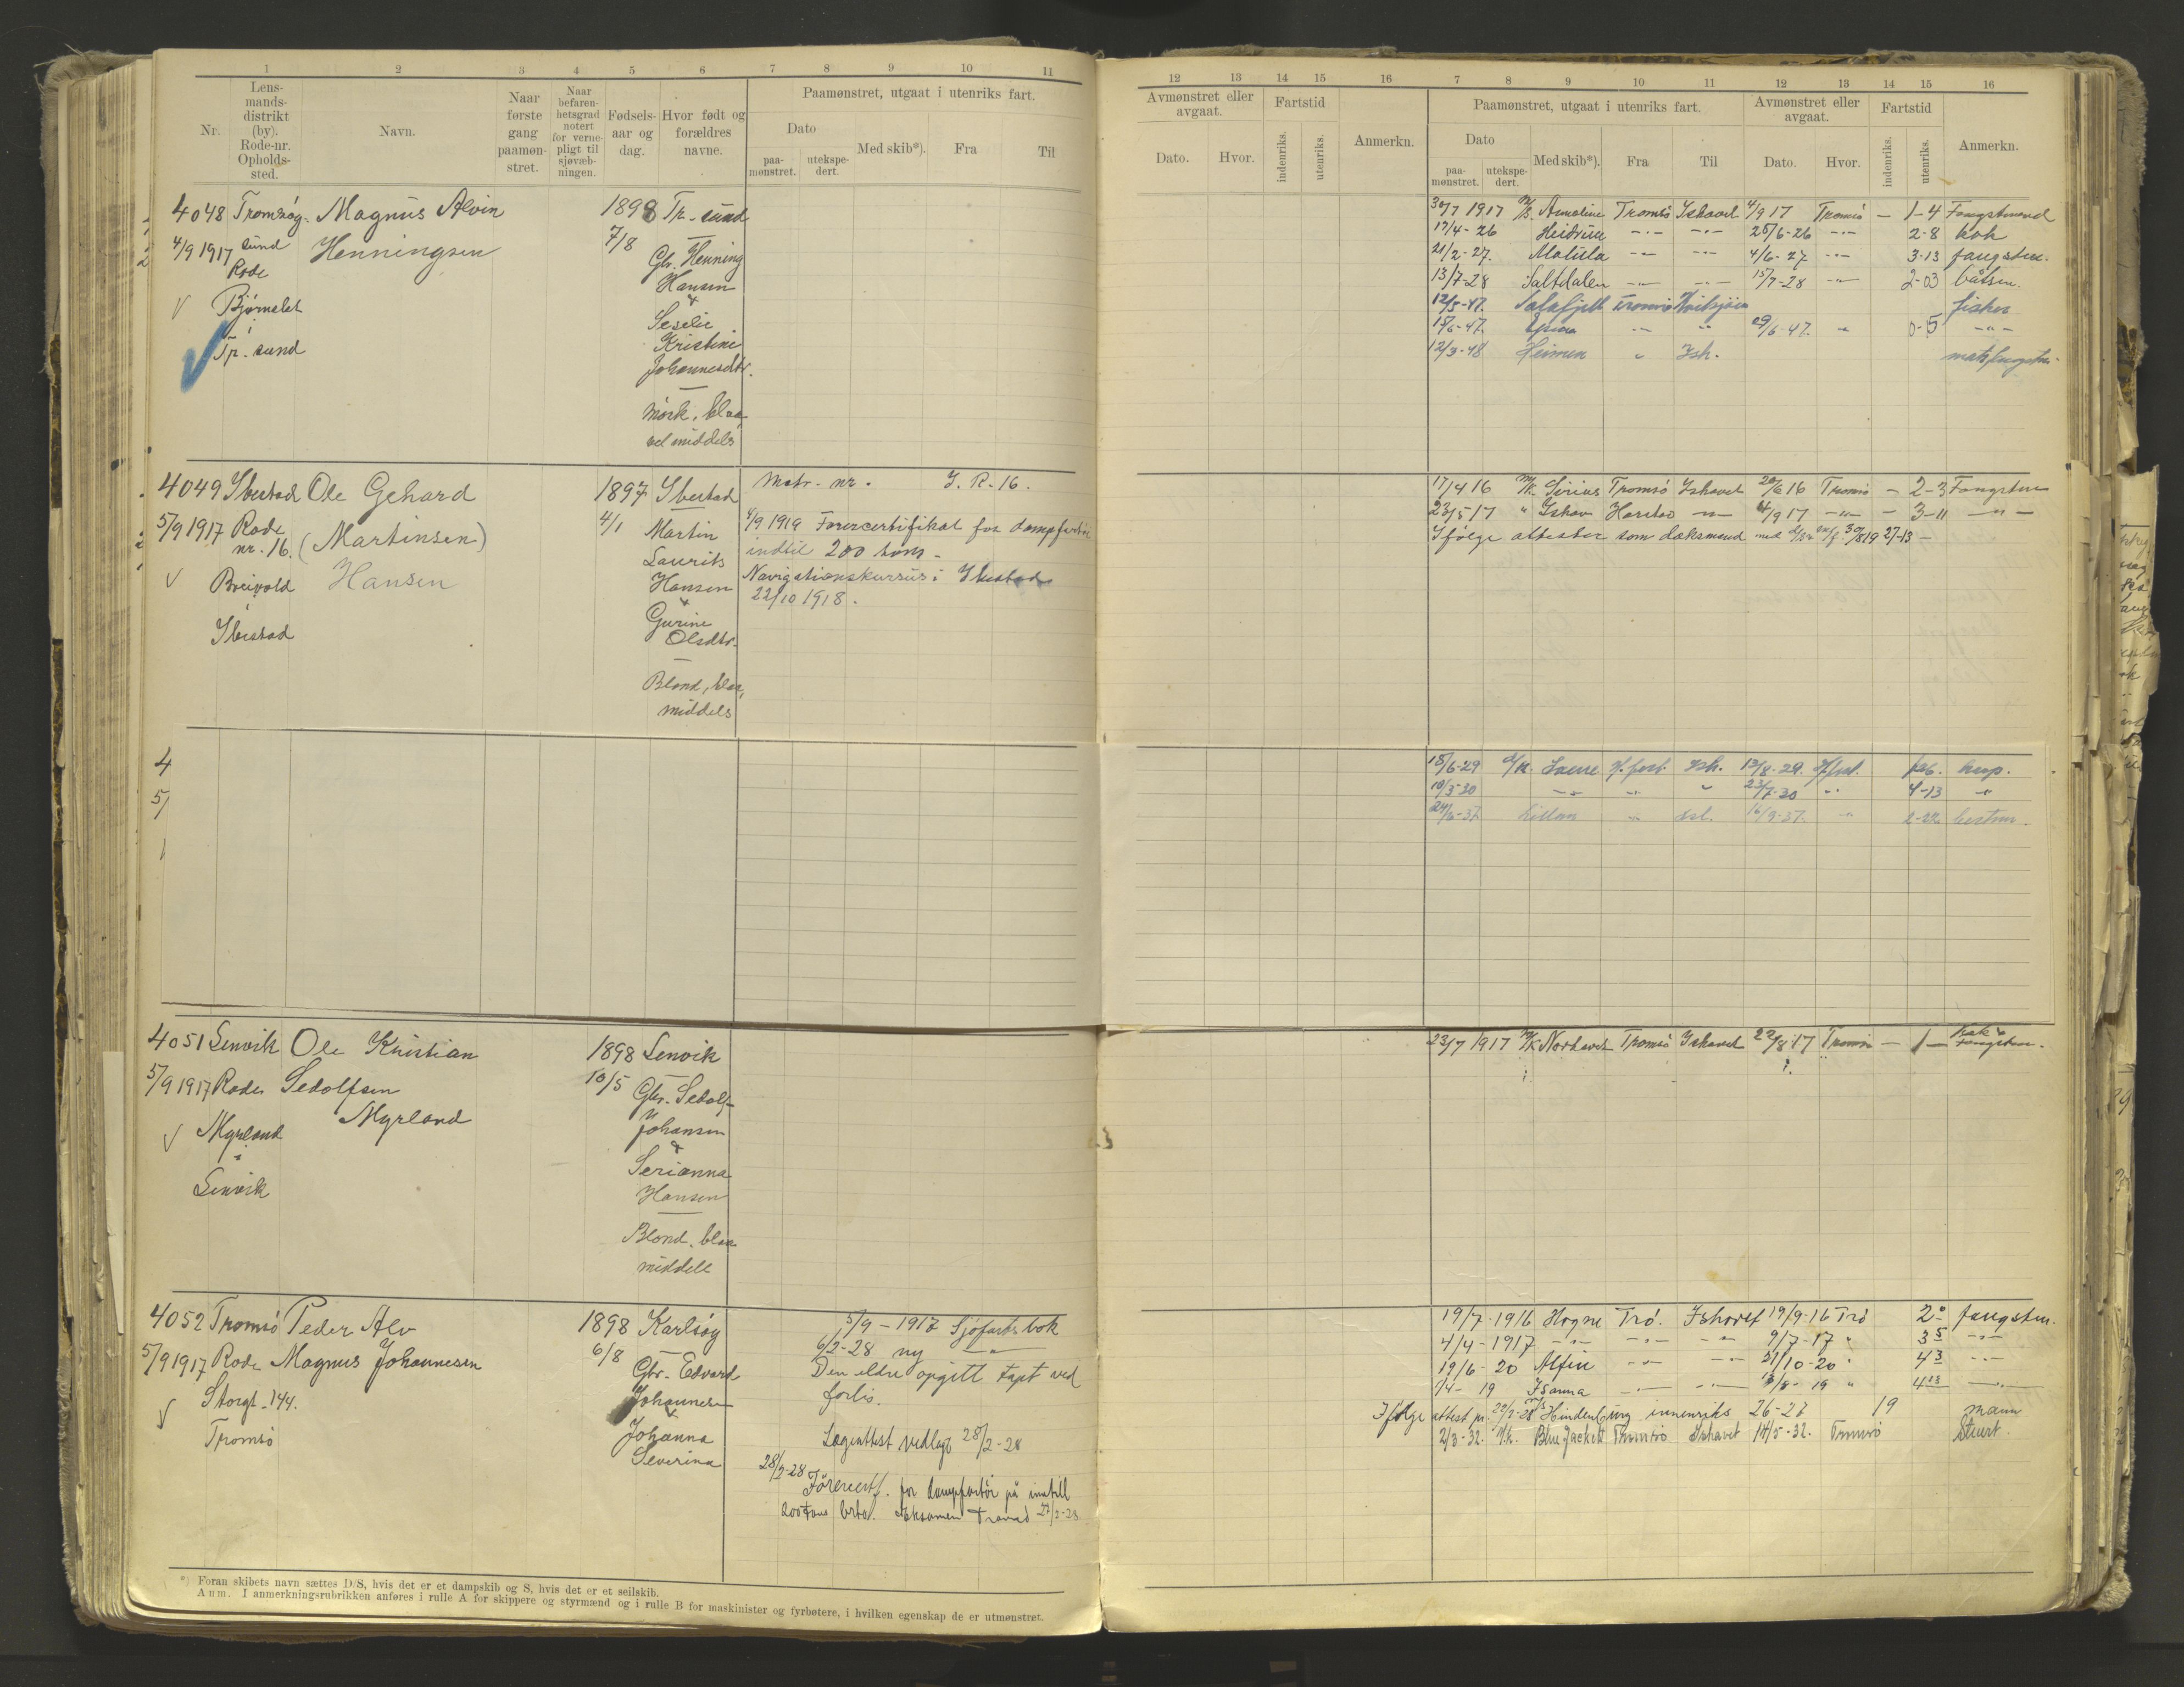 1 2 3 4 5 6 7 8 9 10 11
Nr.
Lens-
mands-
distrikt
(by).
Rode-nr.
Opholds-
sted.
Navn.
Naar
første
gang
paamøn-
stret.
Naar
befaren-
hetsgrad
notert
for verne-
pligt til
sjøvæb-
ningen.
Fødsels-
aar og
dag.
Hvor født og
forældres
navne.
Paamønstret, utgaat i utenriks fart.
Dato
paa-
mønstret.
utekspe-
dert.
Med skib*).
Fra
Til
4048 Tromsøy- Magnus Alvin 1898 Tr. sund
4/9 1917 sund Henningsen 7/8
Rode
Gbr. Henning
Hansen
&
Bjørnelet
i
Tr. sund
Kristine
Johannesdtr.
Mørk, blaa
vel middels
4049 Ibestad Ole Gehard 1897 Ibestad Matr. nr. I. R. 16.
5/9 1917 Rode nr. 16. (Martinsen) 4/1 Martin
Hansen
Laurits
Hansen
&
Gurine
Olsdtr.
4/9 1919 Førercertifikat for dampfartøi
indtil 200 tons -
Navigationskursus i Ibestad
22/10 1918.
Breivold
i
Ibestad
Blond, blaa,
middels
4
5/
4051 Lenvik Ole Kristian 1898 Lenvik
5/9 1917 Rode Sedolfsen 10/5 Gbr. Sedolf
Myrland Myrland Johansen
i
&
Lenvik
Serianna
Hansen
Blond, blaa
middels
4052 Tromsø Peder Alv 1898 Karlsøy 5/9 - 1917 Sjøfartsbok
5/9 1917 Rode Magnus Johannesen 6/8 Gbr. Edvard 6/2-28 ny -"-
Storgt. 144.
Tromsø
Johannesen
&
Johanna
Severina
Den eldre opgitt tapt ved
forlis.
Lægeattest vedlagt 28/2-28
28/2-28 Førercertf. for dampfartøi på inntill
200 Tons brto. Eksamen Tromsø 27/2-28
*) Foran skibets navn sættes D/S, hvis det er et dampskib og S, hvis det er et seilskib.
Anm. I anmerkningsrubrikken anføres i rulle A for skippere og styrmænd og i rulle B for maskinister og fyrbøtere, i hvilken egenskap de er utmønstret.
12 13 14 15 16 7 8 9 10 11 12 13 14 15 16
Avmønstret eller
avgaat.
Dato.
Hvor.
Fartstid
indenriks.
utenriks.
Anmerkn.
Paamønstret, utgaat i utenriks fart.
Dato
paa-
mønstret.
utekspe-
dert.
Med skib*).
Fra
Til
Avmønstret eller
avgaat.
Dato.
Hvor.
Fartstid
indenriks.
utenriks.
Anmerkn.
30/7 1917 M/S. Tromsø Ishavet 4/9 17 Tromsø - 1-4 Fangstmand
17/4-26 -"- -"- 25/6-26 -"- 2-8 kok
21/2-27. -"- -"- 4/6-27 -"- 3-13 fangstm.
13/7-28 Saltdalen -"- -"- 15/9-28 -"- 2-03 båtsm.
12/5-47. Tromsø fisker
15/6-47. -"- " 29/6-47. " 0-15 -"-
12/3-48 Heimen " Ish.
17/4 16 M/K. Sirius Tromsø Ishavet 20/6 16 Tromsø - 2-3 Fangstm
23/5 17 " Ishav Harstad -"- 4/9 17 -"- - 3-11 -"-
Ifølge attester som dæksmand med 30/8 19 27-13 -
15/6-29 H.fest. Ish. 12/8-29 H.fest.
10/3-30 -"- -"- " 23/7-30 -"- 4-13 -"-
24/6-37. " 16/9-37. " 2-22
23/7 1917 M/K Norhavet Tromsø Ishavet 22/8 17 Tromsø - 1 - Kok & Fangstm.
19/7-1916 Hogne Trø. Ishavet 19/9-16 Trø 2º fangstm.
4/4-1917 -"- -"- -"- 9/7-17 " 3 5 -"-
19/6-20 Alfin -"- -"- 21/10-20 " 4 3 -"-
/4- 19 Isanna -"- -"- 13/8-19 " 4 13 -"-
Ifølge attest pr. 22/2-28 Hindenburg innenriks 26-27 19 mann
2/3-32. M.k. Blue Jackett Tromsø Ishavet 14/5-32. Tromsø Stuert.